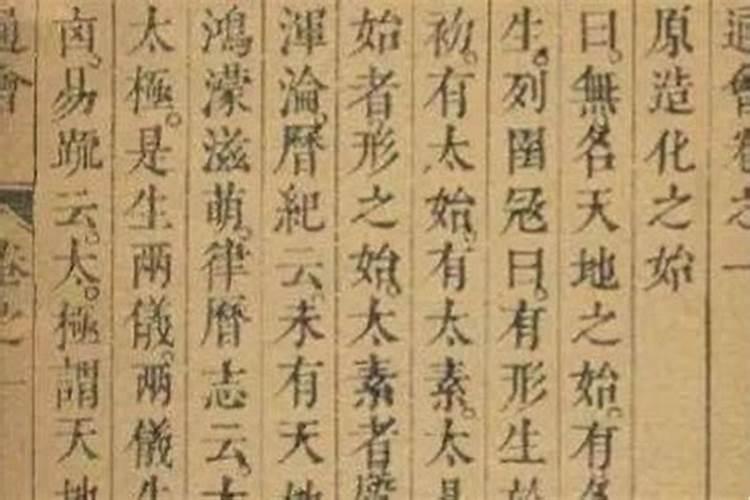 通會卷之一
原造化之始
曰。無名天地之始。有名
生。列圄冦曰。有形生於
初。有太始。有太素。太易
始者形之始。太素者
渾淪。曆紀云。未有天地
鴻濛滋萌。律曆志云。太
太極。是生兩儀。兩儀生
卤。易䟽云。太極謂天地
卷之一